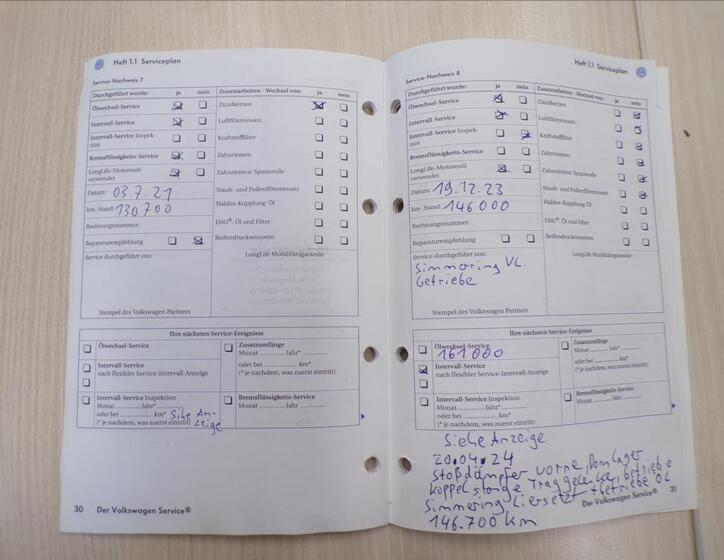 Heft 1.1 Serviceplan
Service-Nachweis 7
Durchgeführt wurde: ja nein
Ölwechsel-Service
Intervall-Service
Intervall-Service Inspek-
tion
Bremsflüssigkeits-Service
LongLife-Motorenöl
verwendet
Datum: 03.7.21
km-Stand: 130700
Rechnungsnummer:
Reparaturempfehlung
Service durchgeführt von:
Stempel des Volkswagen Partners
Zusatzarbeiten - Wechsel von: ja nein
Zündkerzen
Luftfiltereinsatz
Kraftstofffilter
Zahnriemen
Zahnriemen: Spannrolle
Staub- und Pollenfiltereinsatz
Haldex-Kupplung: Öl
DSG®: Öl und Filter
Reifendrucksensoren
LongLife Mobilitätsgarantie
Ihre nächsten Service-Ereignisse
Ölwechsel-Service
Intervall-Service
nach flexibler Service-Intervall-Anzeige
Intervall-Service Inspektion
Monat Jahr*
oder bei km*
(* je nachdem, was zuerst eintritt)
Sihe An-
zeige
Zusatzumfänge
Monat Jahr*
oder bei km*
(* je nachdem, was zuerst eintritt)
Bremsflüssigkeits-Service
Monat Jahr
30 Der Volkswagen Service®
Heft 1.1 Serviceplan
Service-Nachweis 8
Durchgeführt wurde: ja nein
Ölwechsel-Service
Intervall-Service
Intervall-Service Inspek-
tion
Bremsflüssigkeits-Service
LongLife-Motorenöl
verwendet
Datum: 19.12.23
km-Stand: 146000
Rechnungsnummer:
Reparaturempfehlung
Service durchgeführt von:
Simmering VL.
Getriebe
Stempel des Volkswagen Partners
Zusatzarbeiten - Wechsel von: ja nein
Zündkerzen
Luftfiltereinsatz
Kraftstofffilter
Zahnriemen
Zahnriemen: Spannrolle
Staub- und Pollenfiltereinsatz
Haldex-Kupplung: Öl
DSG®: Öl und Filter
Reifendrucksensoren
LongLife Mobilitätsgarantie
Ihre nächsten Service-Ereignisse
Ölwechsel-Service
161000
Intervall-Service
nach flexibler Service-Intervall-Anzeige
Intervall-Service Inspektion
Monat Jahr*
oder bei km*
(* je nachdem, was zuerst eintritt)
Zusatzumfänge
Monat Jahr*
oder bei km*
(* je nachdem, was zuerst eintritt)
Bremsflüssigkeits-Service
Monat Jahr
Siehe Anzeige
20.04.24
Stoßdämpfer vorne, Domlager
Koppelstange Traggelenke, Getriebe
Simmering L ersetzt + Getriebe Öl
146.700 km
Der Volkswagen Service® 31